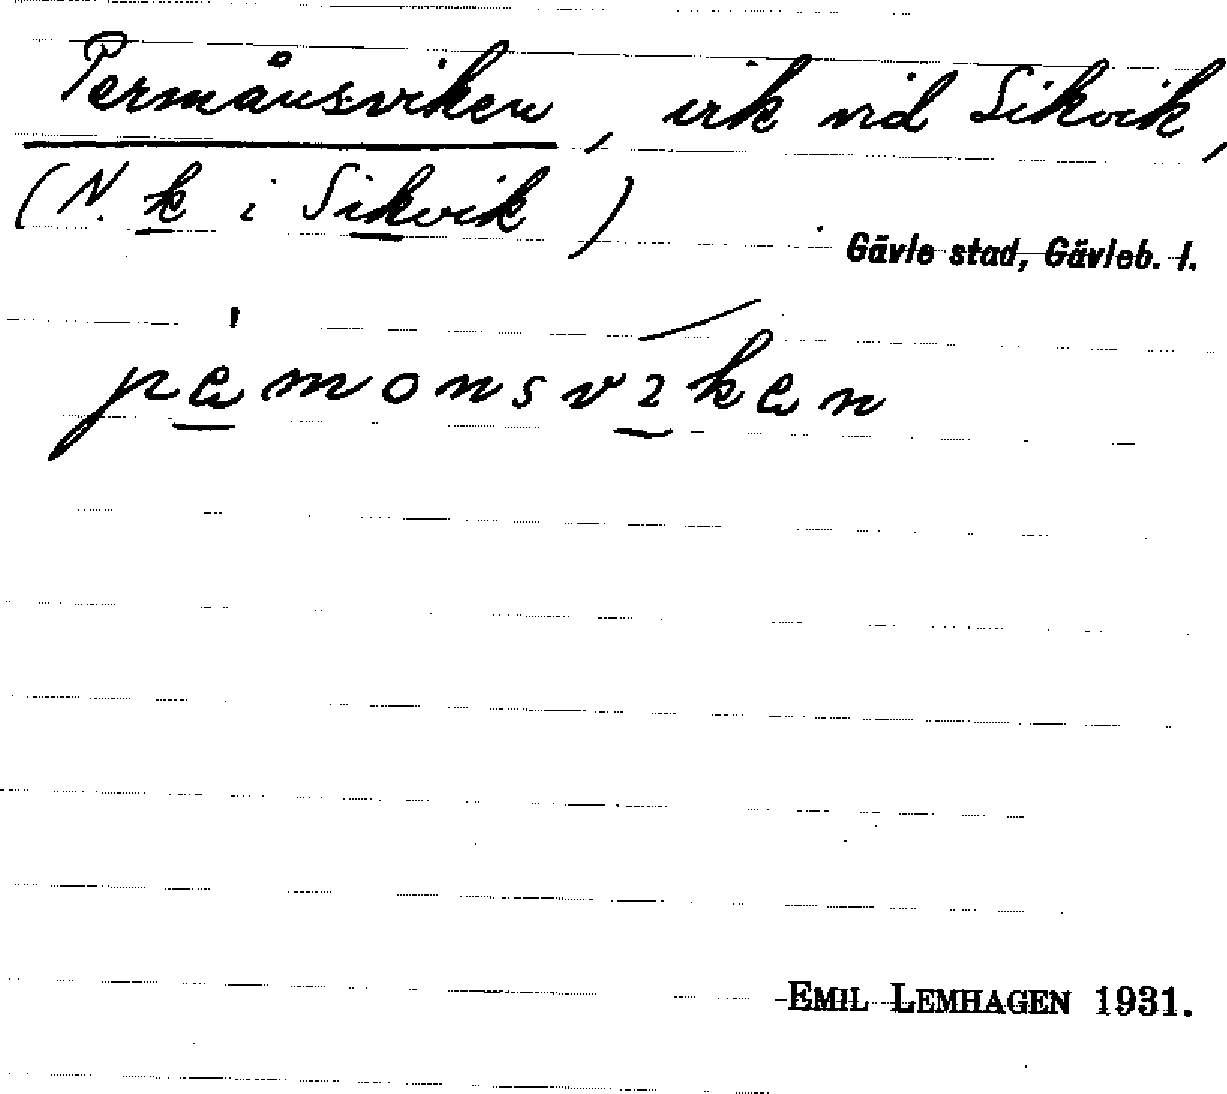 Permånsviken, vik vid Sikvik,
(N. k i Sikvik)
Gävle stad, Gävleb. l.
pämonsviken
EMIL LEMHAGEN 1931.